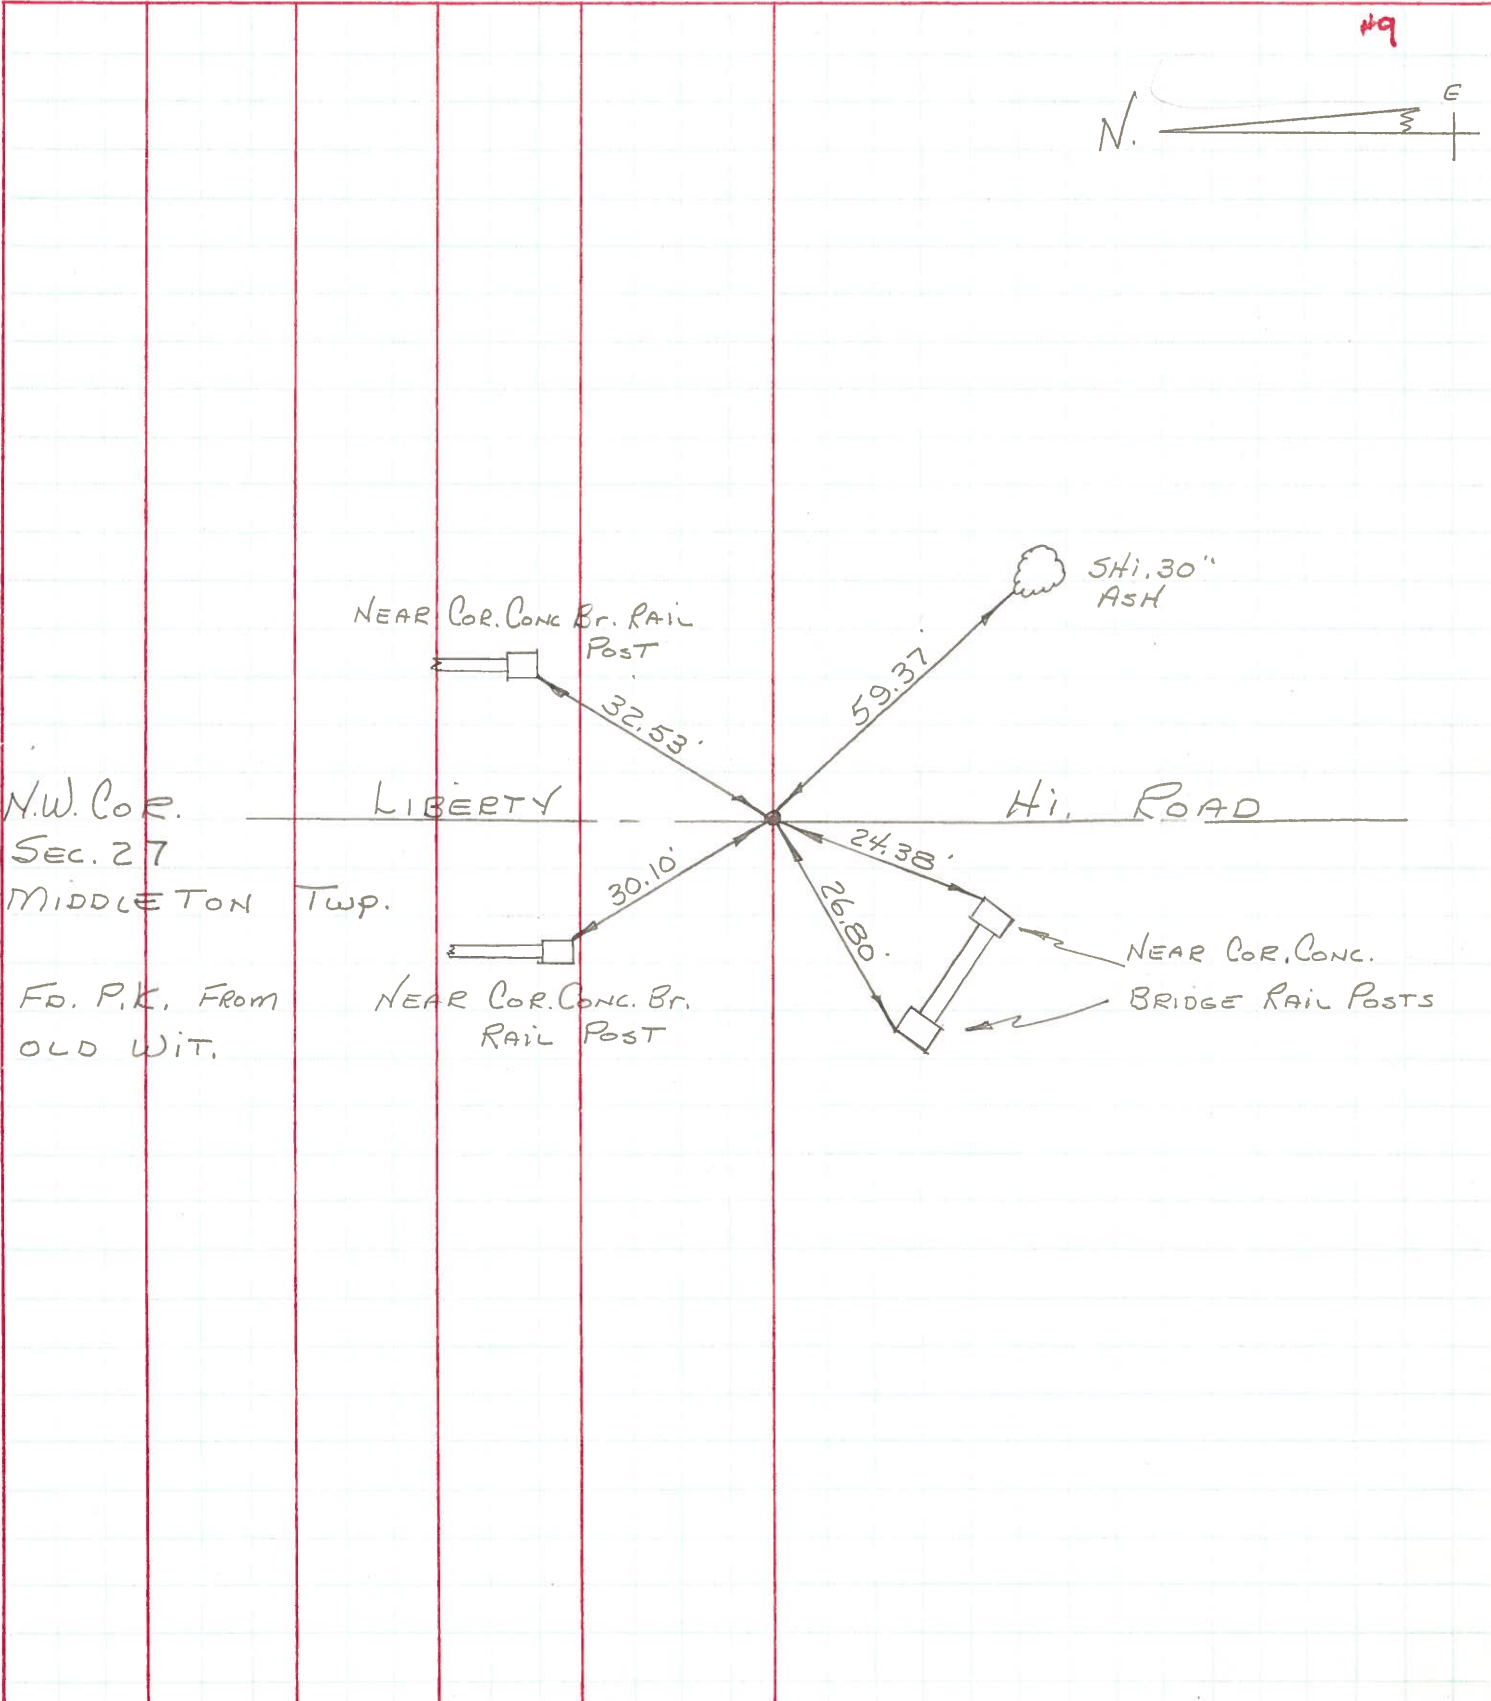 #9
N.
E
SHi. 30"
ASH
NEAR COR. CONC Br. RAIL
POST
59.37'
32.53'
N.W. COR.
SEC. 27
MIDDLETON TWP.
LIBERTY Hi. ROAD
24.38'
30.10'
26.80'
NEAR COR. CONC.
BRIDGE RAIL POSTS
FD. P.K. FROM
OLD WIT.
NEAR COR. CONC. Br.
RAIL POST